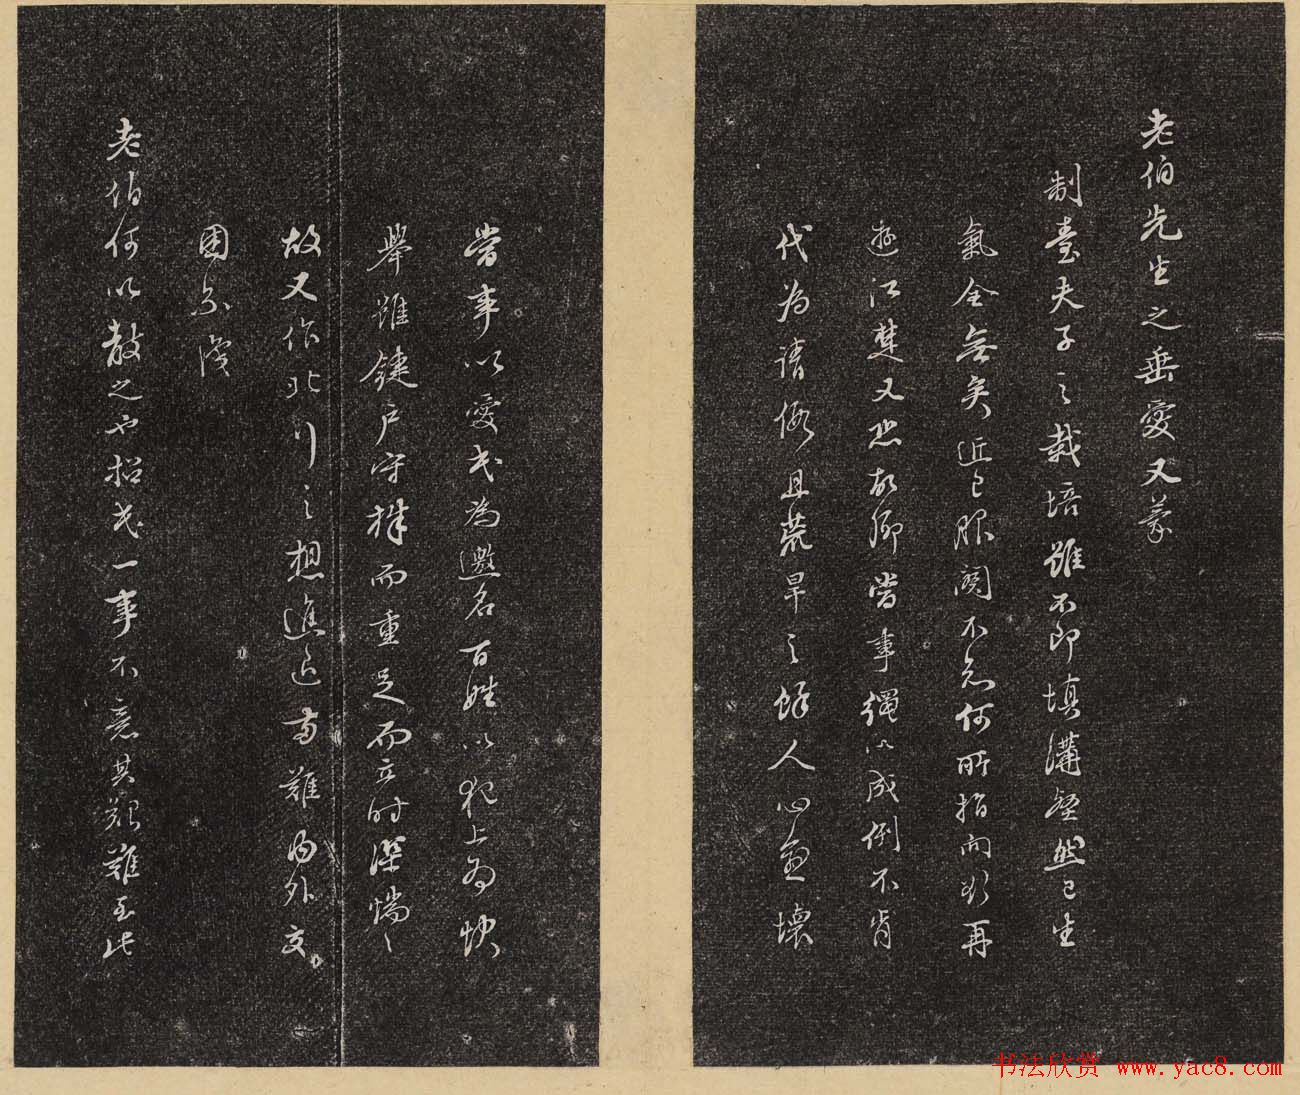 老伯先生之垂愛又蒙
制臺夫子之栽培雖不即填溝壑然已生
氣全無矣近已服闋不知何所指向欲再
遊江楚又恐敝鄉當事繩以成例不肯
代為請假且荒旱之餘人心亦壞
當事以愛民為邀名百姓以犯上為快
舉雖鍵戶守株而重足而立時深惴惴
故又作北行之想進退兩難內外交
困不識
老伯何以教之也招民一事不意其艱難至此
书法欣赏 www.yac8.com